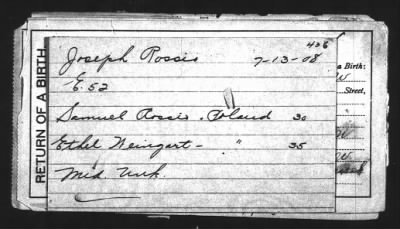 406
Joseph Rossis 7-13-08
E. 52
Samuel Rossis . Poland 30
Ethel Weingart - " 35
Mid. Unk.
RETURN OF A BIRTH.
a Birth:
Street,